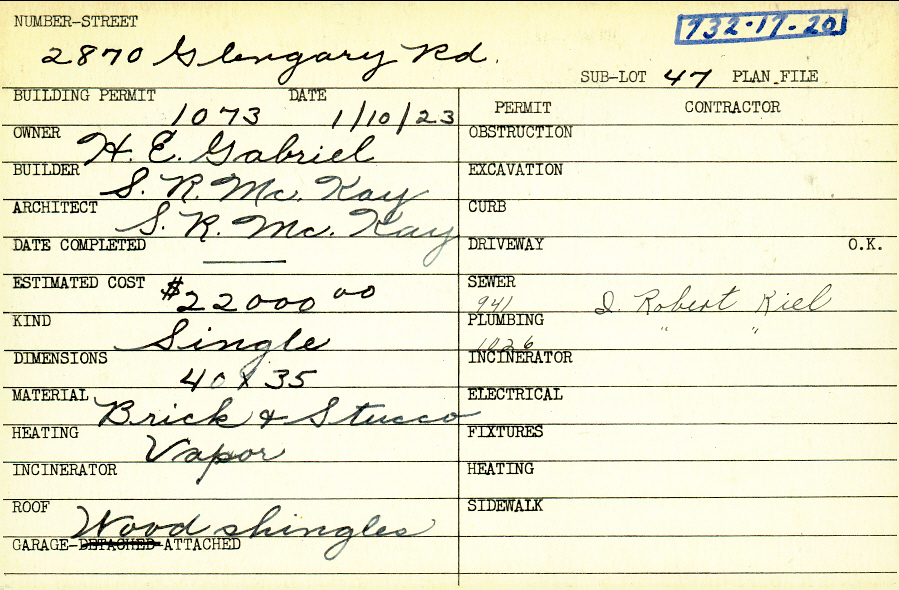 NUMBER-STREET
732-17-20
2870 Glengary Rd.
SUB-LOT 47 PLAN FILE
BUILDING PERMIT 1073 DATE 1/10/23
PERMIT CONTRACTOR
OWNER H. E. Gabriel
OBSTRUCTION
BUILDER S. R. Mc. Kay
EXCAVATION
ARCHITECT S. R. Mc. Kay
CURB
DATE COMPLETED —
DRIVEWAY O.K.
ESTIMATED COST $22000 00
SEWER 941 I. Robert Kiel
KIND Single
PLUMBING 1026 " "
DIMENSIONS 40 x 35
INCINERATOR
MATERIAL Brick & Stucco
ELECTRICAL
HEATING Vapor
FIXTURES
INCINERATOR
HEATING
ROOF Wood shingles
SIDEWALK
GARAGE-DETACHED-ATTACHED